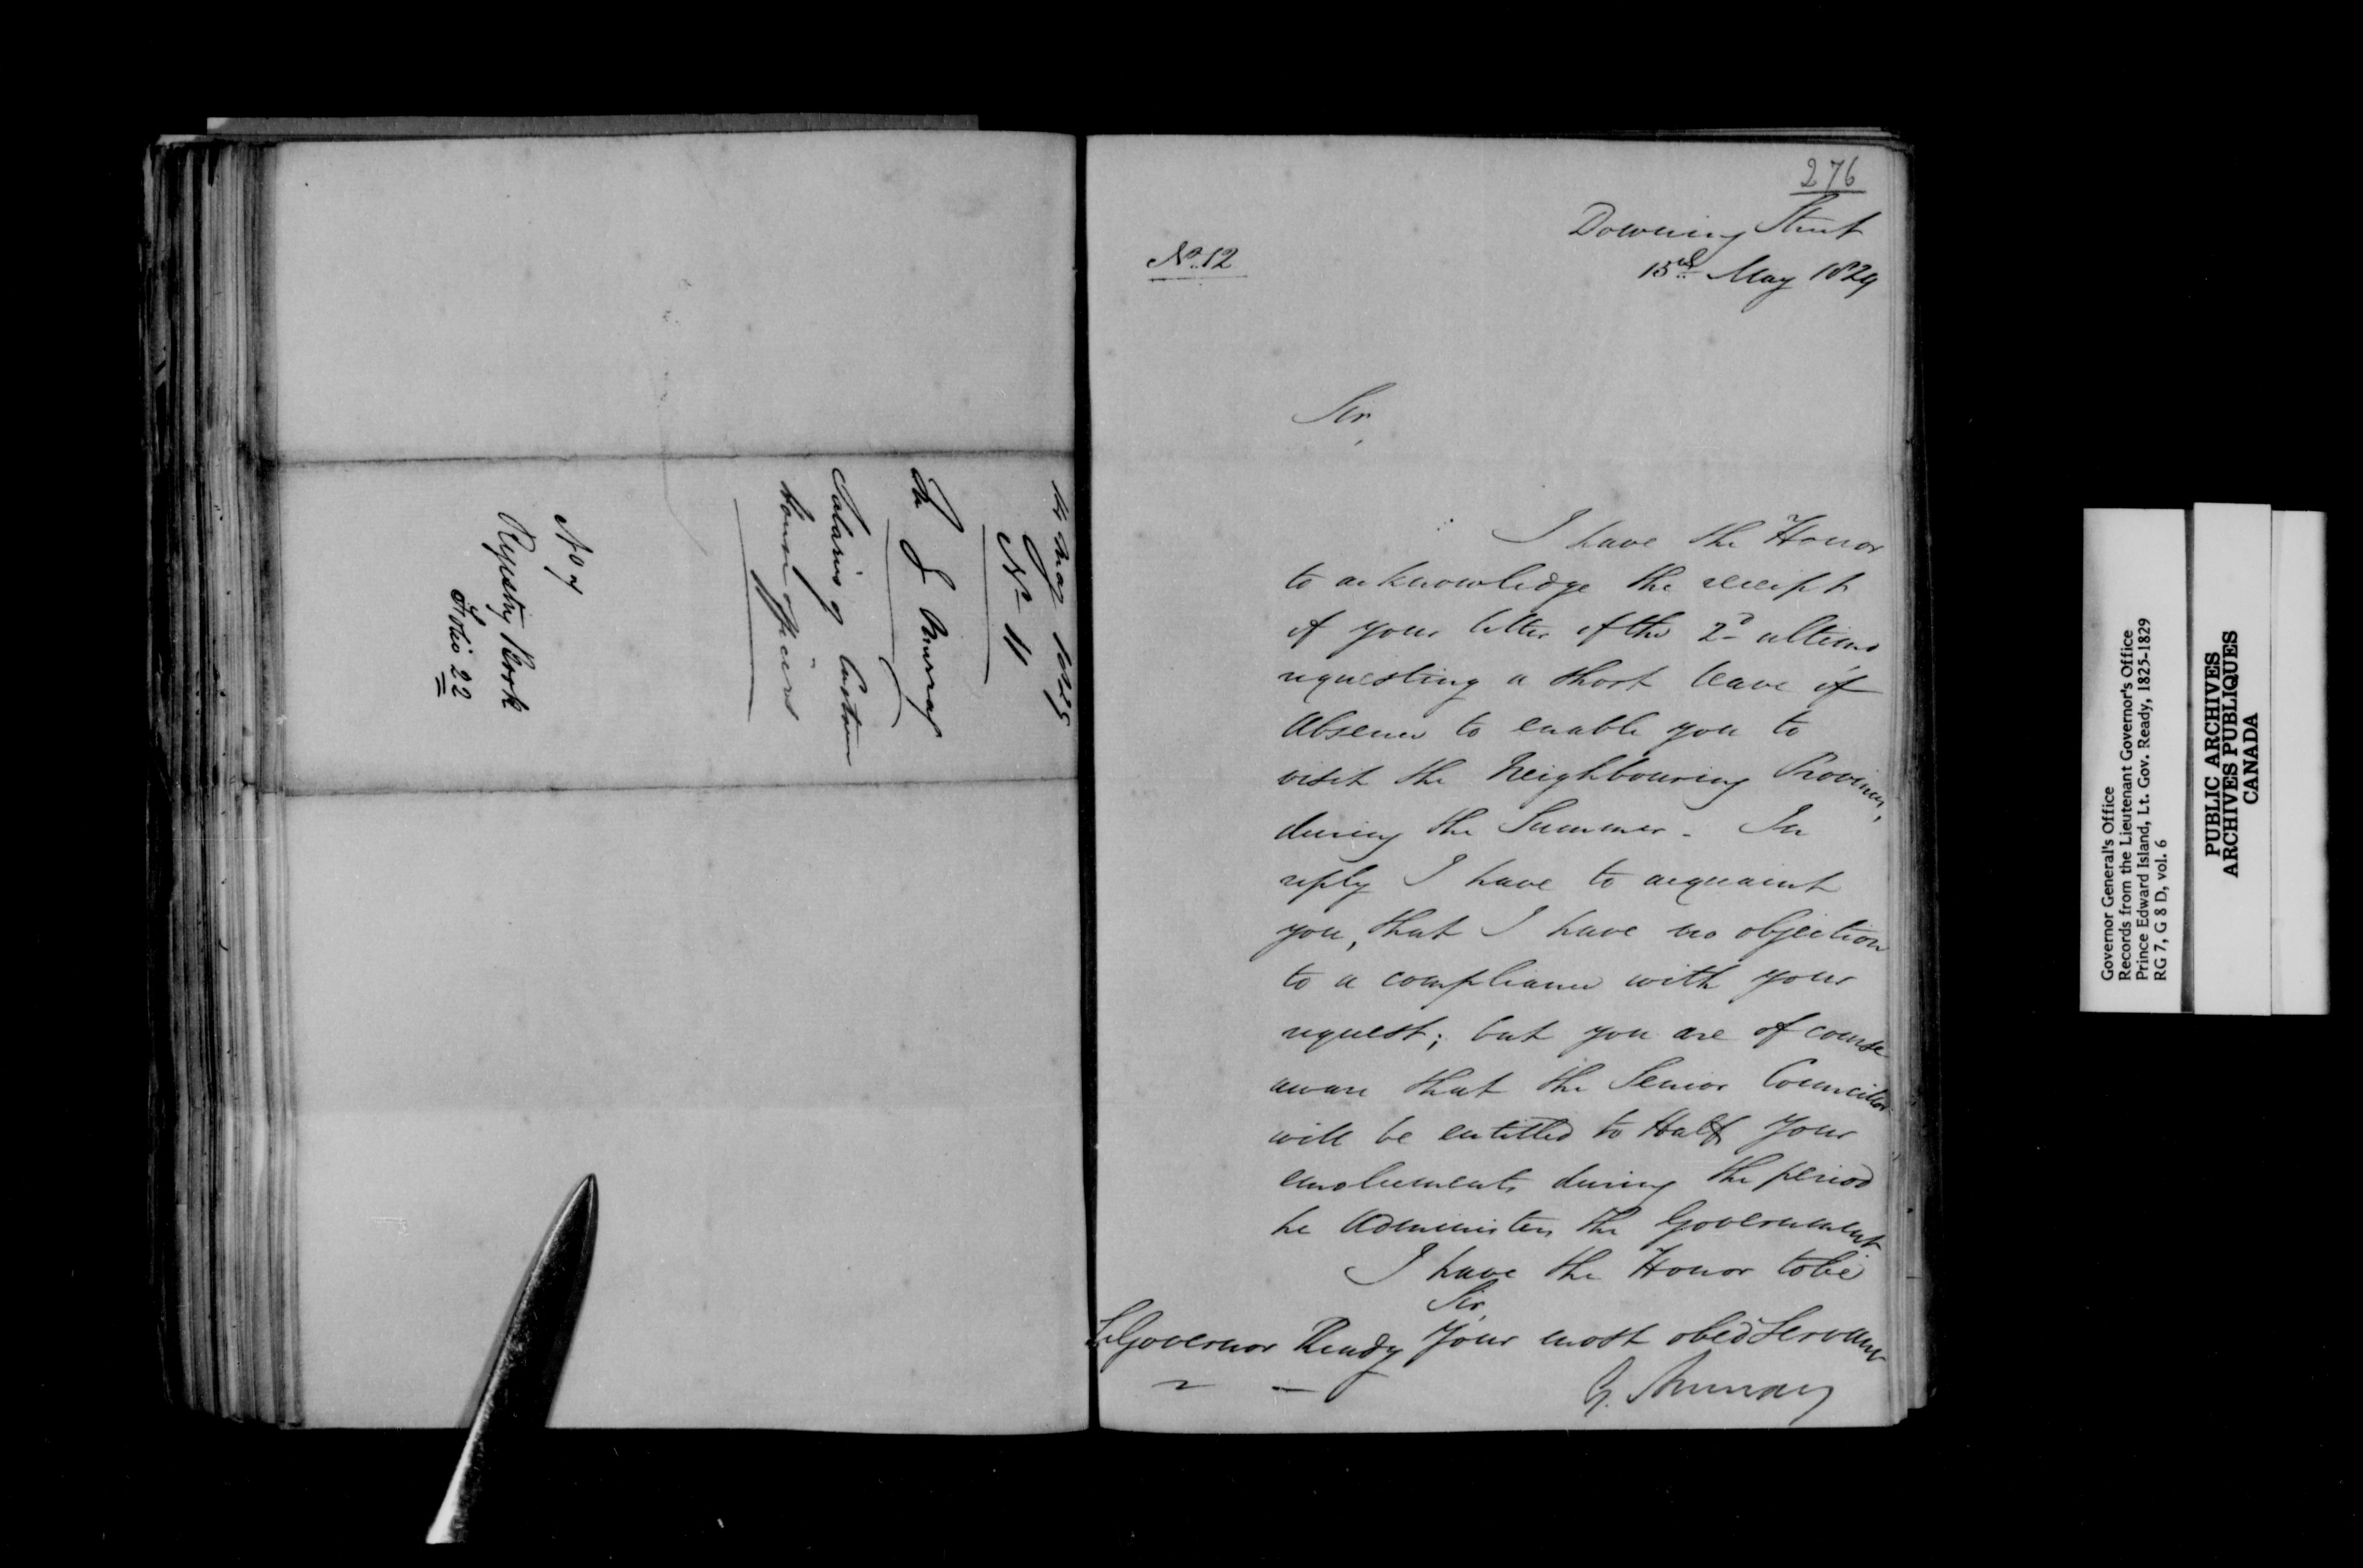 May
No 11
Sr G Murray
Salaries of Custom
house officers
No 7
Registry Book
Folio 22
276
Downing Street
No. 12
May 1829
Sir,
I have the Honor
to acknowledge the receipt
of your letter of the 2d ultimo
requesting a short leave of
Absence to enable you to
visit the Neighbouring Provinces,
during the Summer - In
reply I have to acquaint
you, that I have no objection
to a compliance with your
request; but you are of course
aware that the Senior Councillor
will be entitled to Half your
emoluments during the period
he Administers the Government.
I have the Honor to be
Sir,
Your most obed Servant
Lt Governor Ready
G. Murray
Governor General's Office
Records from the Lieutenant Governor's Office
Prince Edward Island, Lt. Gov. Ready, 1825-1829
RG 7, G 8 D, vol. 6
PUBLIC ARCHIVES
ARCHIVES PUBLIQUES
CANADA